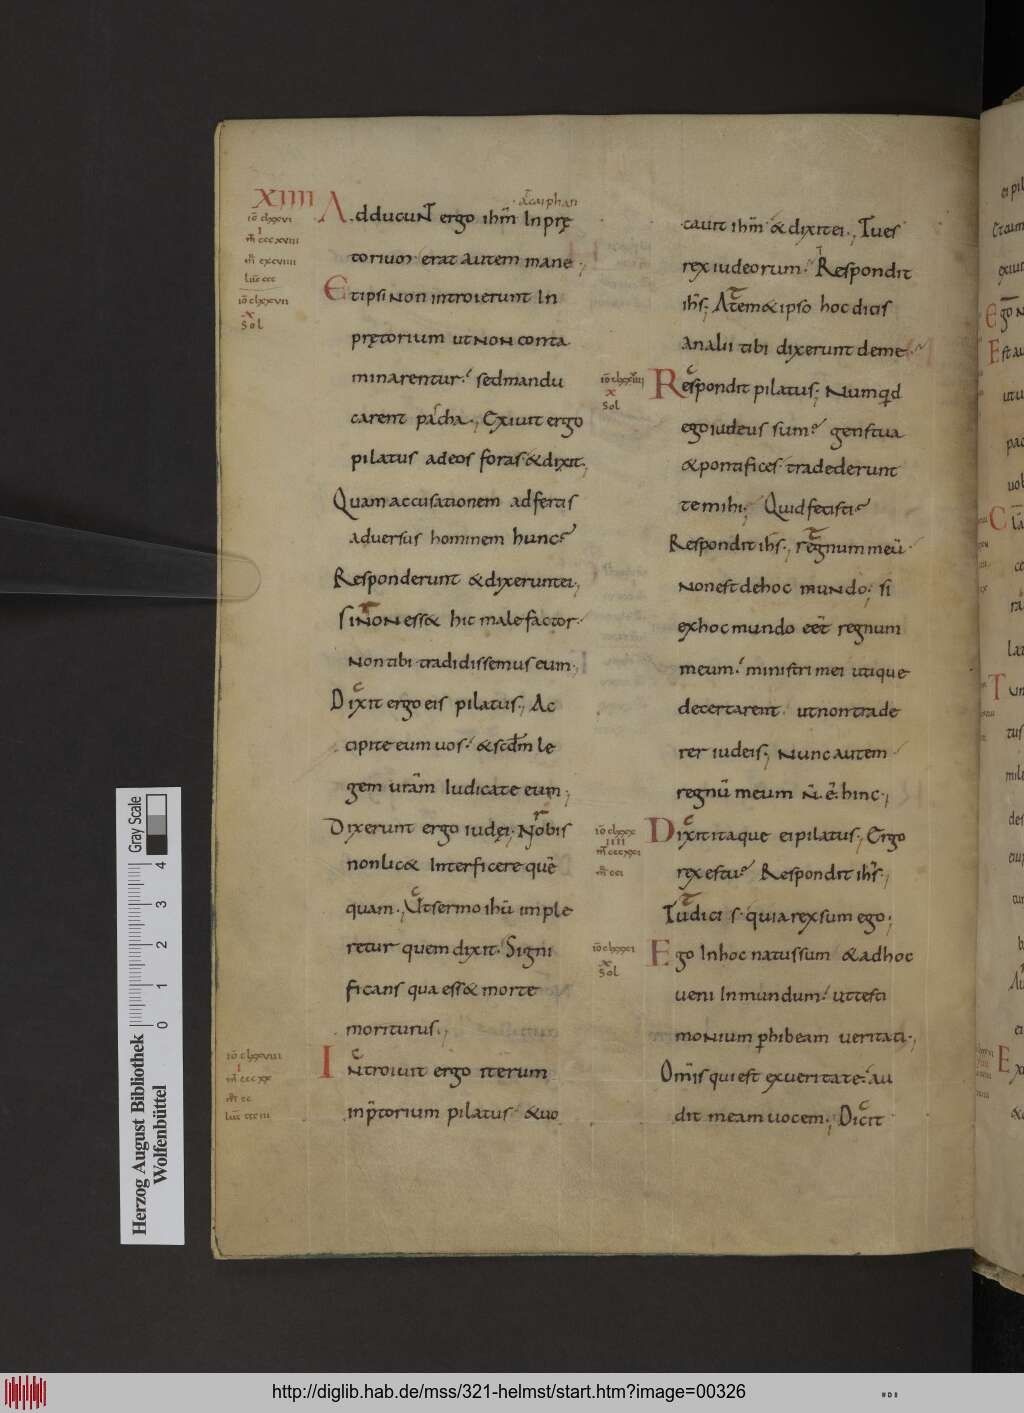 XIIII
iō clxxvi
i
m̄ cccxviii
m̄ cxcviiii
luc̄ ccc
iō clxxvii
x
Sol
a caiphan
Adducunt ergo ihm̄ In prę
torium· erat autem mane·,
Et ipsi non introierunt In
prętorium ut non conta
minarentur· sed mandu
carent pascha·, Exiuit ergo
pilatus ad eos foras· & dixit·,
Quam accusationem adfertis
aduersus hominem hunc?
Responderunt & dixerunt ei·,
Si non ess& hic malefactor·
Non tibi tradidissemus eum·,
Dixit ergo eis pilatus·, Ac
cipite eum uos· & scdm̄ le
gem ur̄am Iudicate eum·,
Dixerunt ergo iudęi· Nobis
non lic& Interficere quē
quam·, Ut sermo ihū imple
retur quem dixit· Signi
ficans qua ess& morte
moriturus·,
iō clxxviii
i
m̄ cccxx
m̄ cc
luc̄ ccciii
Introiuit ergo iterum
in p̄torium pilatus· & uo
cauit ihm̄ & dixit ei·, Tu es
rex iudeorum· Respondit
ihs̄·, A tem& ipso hoc dicis
an alii tibi dixerunt de me·
iō clxxviiii
x
Sol
Respondit pilatus·, Numqd
ego iudeus sum? gens tua
& pontifices· tradederunt
te mihi·, Quid fecisti?
Respondit ihs̄·, regnum meū·
Non est de hoc mundo·, si
ex hoc mundo eēt regnum
meum· ministri mei utique
decertarent· ut non trade
rer iudeis·, Nunc autem
regnū meum n̄· ē· hinc·,
iō clxxx
iiii
m̄ cccxxi
m̄ cci
Dixit itaque ei pilatus·, Ergo
rex es tu? Respondit ihs̄·,
Tu dicis· quia rex sum ego·,
iō clxxxi
x
Sol
Ego In hoc natus sum & ad hoc
ueni In mundum· ut testi
monium p̱hibeam ueritati·,
Om̄is qui est ex ueritate· au
dit meam uocem·, Dicit
Herzog August Bibliothek
Wolfenbüttel
0 1 2 3 4
Gray Scale
http://diglib.hab.de/mss/321-helmst/start.htm?image=00326